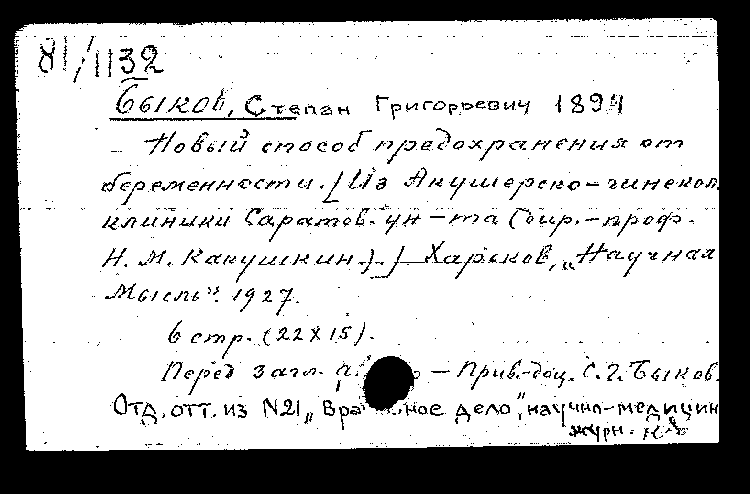 81/1132
Быков, Степан Григорьевич 1894
Новый способ предохранения от
беременности. [Из Акушерско-гинекол.
клиники Саратов. ун-та (дир.-проф.
Н. М. Какушкин.).] Харьков, „Научная
Мысль". 1927.
6 стр. (22X15).
Перед загл. – Прив.-доц. С. Г. Быков.
Отд. отт. из N21 „Вра ное дело", научно-медицин
журн.